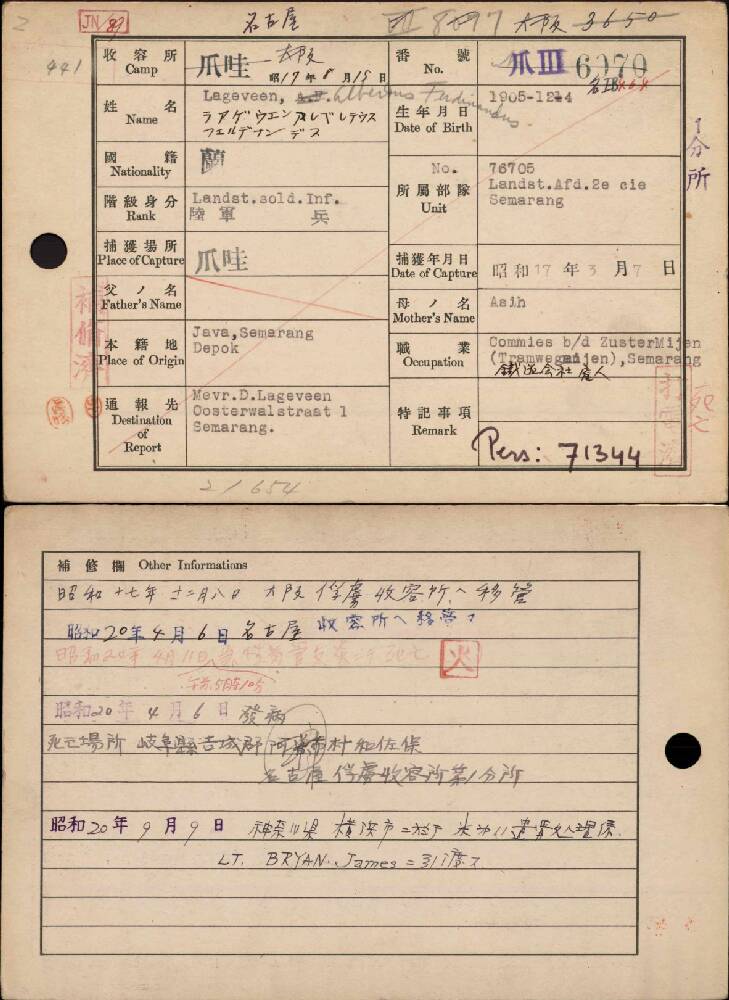 2
JN 89
名古屋
8897
大阪 3650
441
收容所
Camp
爪哇
大阪
昭17年8月15日
番號
No.
爪III 6070
姓名
Name
Lageveen, A.F. Albertus Ferdinandus.
ラアゲウエン アルベルテウス
フェルデナンデス
生年月日
Date of Birth
1905-12-4
1分所
國籍
Nationality
蘭
階級身分
Rank
Landst.sold.Inf.
陸軍 兵
所屬部隊
Unit
No. 76705
Landst.Afd.2e cie
Semarang
捕獲場所
Place of Capture
爪哇
捕獲年月日
Date of Capture
昭和17年3月7日
父ノ名
Father's Name
母ノ名
Mother's Name
Asih
補備濟
本籍地
Place of Origin
Java,Semarang
Depok
職業
Occupation
Commies b/d ZusterMijen
(Tramwegmijen),Semarang
鐵道会社 雇人
通報先
Destination
of
Report
Mevr.D.Lageveen
Oosterwalstraat 1
Semarang.
特記事項
Remark
死亡
Pers: 71344
21654
補修欄 Other Informations
昭和十七年十二月八日 大阪俘虜收容所ヘ移管
昭和20年4月6日名古屋收容所ヘ移管ス
昭和20年4月11日
死亡
火
午前5時10分
昭和20年4月6日 發病
死亡場所 岐阜縣吉城郡阿曾布村和佐保
名古屋俘虜收容所第1分所
昭和20年9月9日 神奈川県横浜市ニ於テ 米
LT. BRYAN. Jamesニ引渡ス